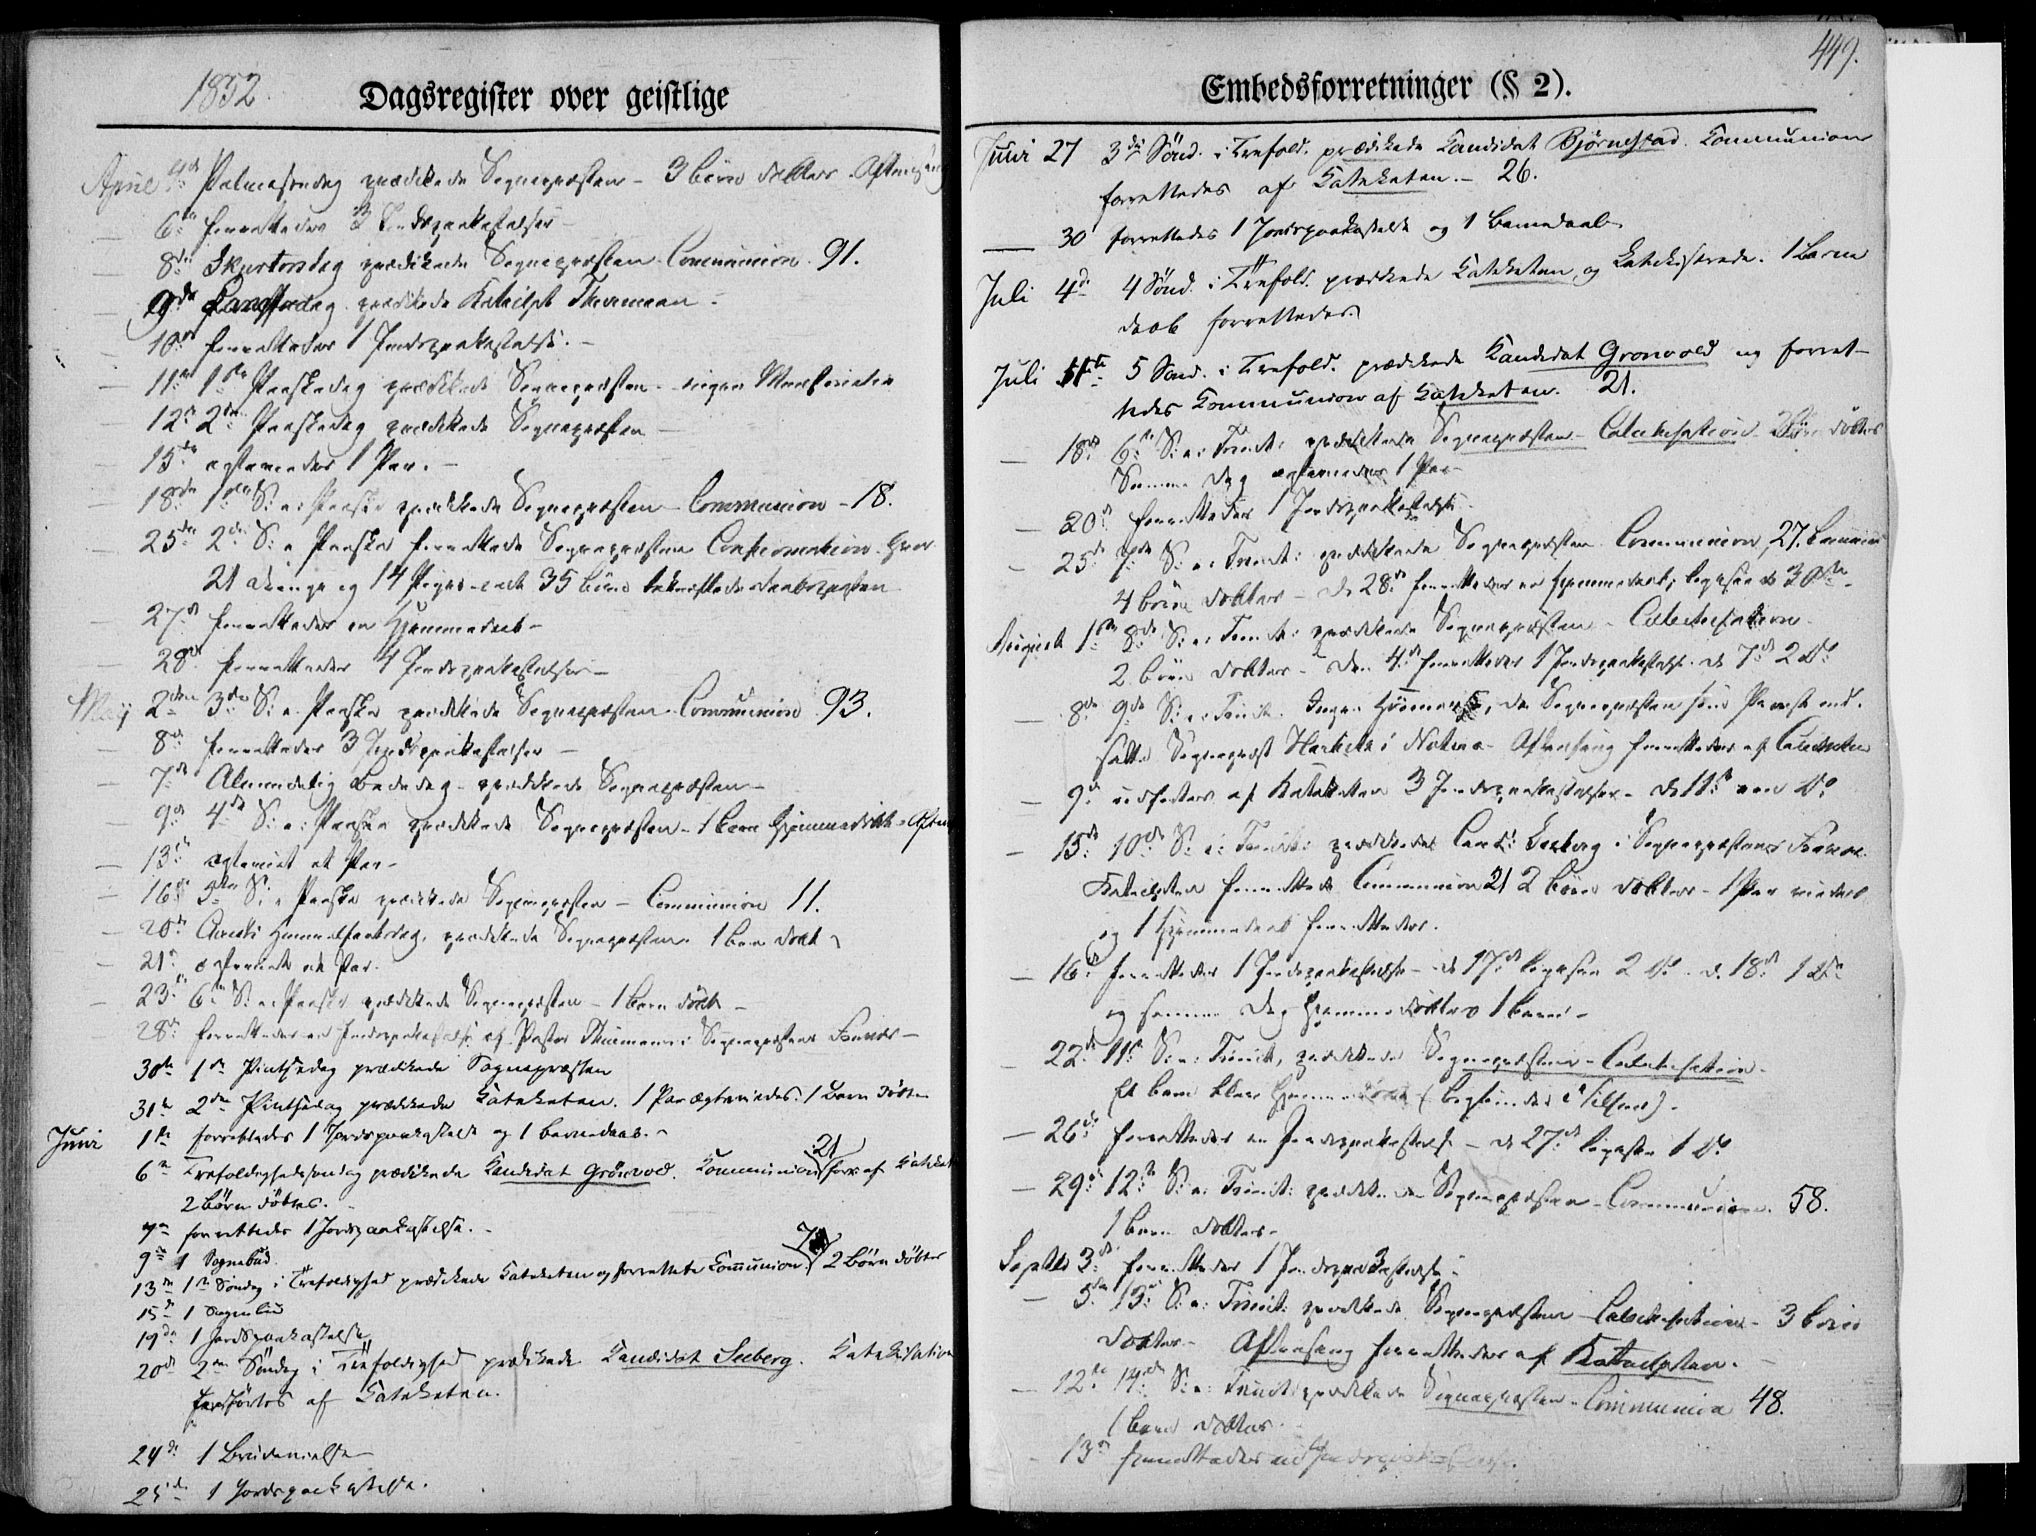 1852
Dagsregister over geistlige
April 4de Palmesøndag prædikede Sognepræsten - 3 børn døbtes. Aftensang
- 6te forrettedes 3 Jordspaakastelser
- 8de Skjertorsdag prædikede Sognepræsten Communion. 91.
- 9de Langfredag prædikede Katechet Thurmann -
- 10de forrettedes 1 Jordspaakastelse. -
- 11te 1ste Paaskedag prædikede Sognepræsten - ingen
- 12te 2den Paaskedag prædikede Sognepræsten -
- 15de egteviedes 1 Par. -
- 18de 1ste S: e: Paaske prædikede Sognepræsten - Communion - 18.
- 25de 2den S: e Paaske forrettede Sognepræsten Confirmation.
21 drenge og 14 Piger - ialt 35 børn
- 27de forrettedes en Hjemmedaab -
- 28de forrettedes 4 Jordspaakastelser -
May 2den 3die S: e. Paaske prædikede Sognepræsten - Communion 93.
- 8de forrettedes 3 Jordspaakastelser -
- 7de Almindelig Bededag - prædikede Sognepræsten -
- 9de 4de S: e: Paaske prædikede Sognepræsten - 1 barn Hjemmedøbt -
- 13de egteviet et Par -
- 16de 5te S: e Paaske prædikede Sognepræsten - Communion 11.
- 20de Christi Himmelfartsdag, prædikede Sognepræsten 1 barn døbt
- 21de egteviet et Par.
- 23de 6te S: e. Paaske prædikede Sognepræsten - 1 barn døbt -
28de forrettedes en Jordspaakastelse af Pastor Thurmann i Sognepræstens Fravær -
30te 1ste Pintsedag prædikede Sognepræsten
31te 2den Pintsedag prædikede Kateketen. 1 Par Egteviedes. 1 Barn døbt
Juni 1ste forrettedes 1 Jordspaakastelse og 1 barnedaab. -
6te Trefoldighedssøndag prædikede Kandidat Grönvold. Kommunion 21 forr. af Kateket
2 børn døbtes. -
7de forrettedes 1 Jordspaakastelse. -
9de 1 Sognebud.
13de 1ste Søndag i Trefoldighed prædikede Kateketen og forrettede Communion 7 2 Børn døbtes
15de 1 Sognebud
19de 1 Jordspaakastelse
20de 2den Søndag i Trefoldighed prædikede Kandidat Seeberg. Katekisation
af Kateketen.
24de 1 Brudevielse
25de 1 Jordspaakastelse.
449.
Embedsforretninger (§ 2).
Juni 27 3die Sönd. i Trefold. prædikede Kandidat Björnstad. Kommunion
forrettedes af Kateketen. - 26.
- 30 forrettedes 1 Jordspaakastelse og 1 Barnedaab
Juli 4de 4 Sönd. i Trefold. prædikede Kateketen, og Katekiserede. 1 Barne
daab forrettedes.
Juli 11te 5 Sönd. i Trefold. prædikede Kandidat Gronvold og forret-
tedes Kommunion af Kateketen. 21.
- 18de 6te S: e: Trinit: prædikede Sognepræsten - Catechisation - døbtes
Samme Dag egteviedes 1 Par
- 20de forrettedes 1 Jordspaakastelse -
- 25de 7de S: e: Trinit: prædikede Sognepræsten Communion, 27.
4 børn døbtes - d. 28de forrettedes en Hjemmedaab; ligesaa d 30te -
August 1ste 8de S: e: Trinit: prædikede Sognepræsten - Catechisation
2 børn døbtes - den 4de forrettedes 1 Jordspaakastelse. d 7de 2 do
- 8de 9de S: e: Trinit. Ingen, da Sognepræsten
Sognepræst i - Aftensang forrettedes af Catecheten
- 9de af Katecheten 3 Jordspaakastelser - d 11te een do
- 15de 10de S: e: Trinit: prædikede Cand: Seeberg i Sognepræstens Fravær.
Katecheten forrettede Communion 21 2 børn døbtes - 1 Par viedes
og 1 Hjemmedaab forrettedes.
- 16de forrettedes 1 Jordspaakastelse - d 17de ligesaa 2 do - d. 18de 1 do
og samme Dag Hjemmedøbtes 1 barn -
- 22de 11te S: e: Trinit, prædikede Sognepræsten - Catechisation -
Et barn blev Hjemmedøbt
- 26de forrettedes en Jordspaakastelse - d 27de ligesaa 1 do
- 29de 12te S: e: Trinit: prædikede Sognepræsten - Communion. 58.
1 barn døbtes -
Septbr 3de forrettedes 1 Jordspaakastelse -
- 5te 13de S: e: Trinit: prædikede Sognepræsten - Catechisation - 3 børn
døbtes - Aftensang forrettedes af Katecheten. -
- 12te 14de S: e: Trinit: prædikede Sognepræsten - Communion 48.
1 barn døbtes -
- 13de forrettedes en Jordspaakastelse.